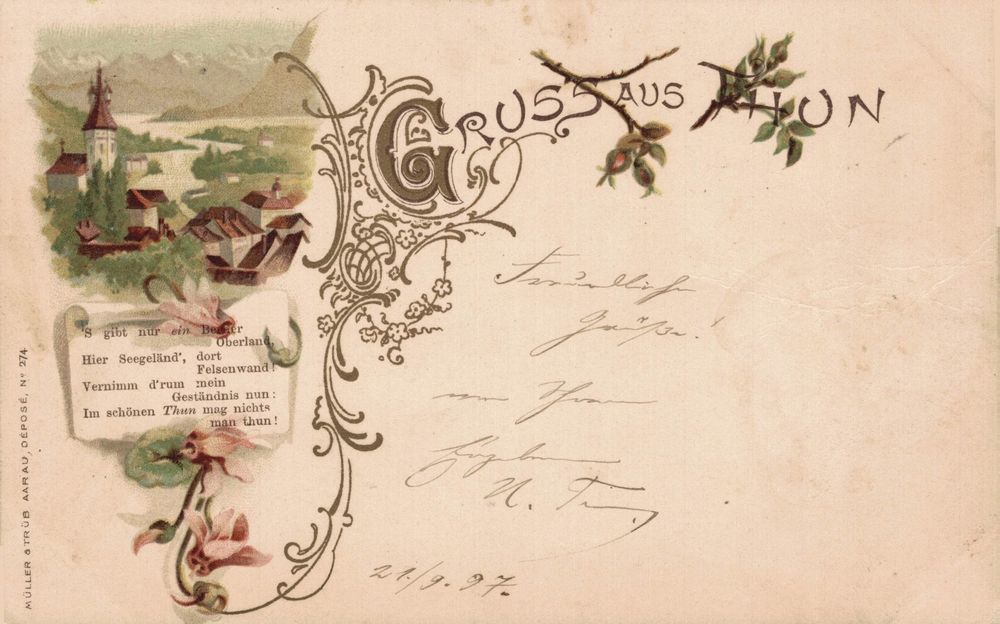 GRUSS AUS THUN
'S gibt nur ein Berner
Oberland,
Hier Seegeländ', dort
Felsenwand!
Vernimm d'rum mein
Geständnis nun:
Im schönen Thun mag nichts
man thun!
Freundliche
Grüße!
von Ihrem
21./9. 97.
MÜLLER & TRÜB AARAU, DÉPOSÉ, No 274